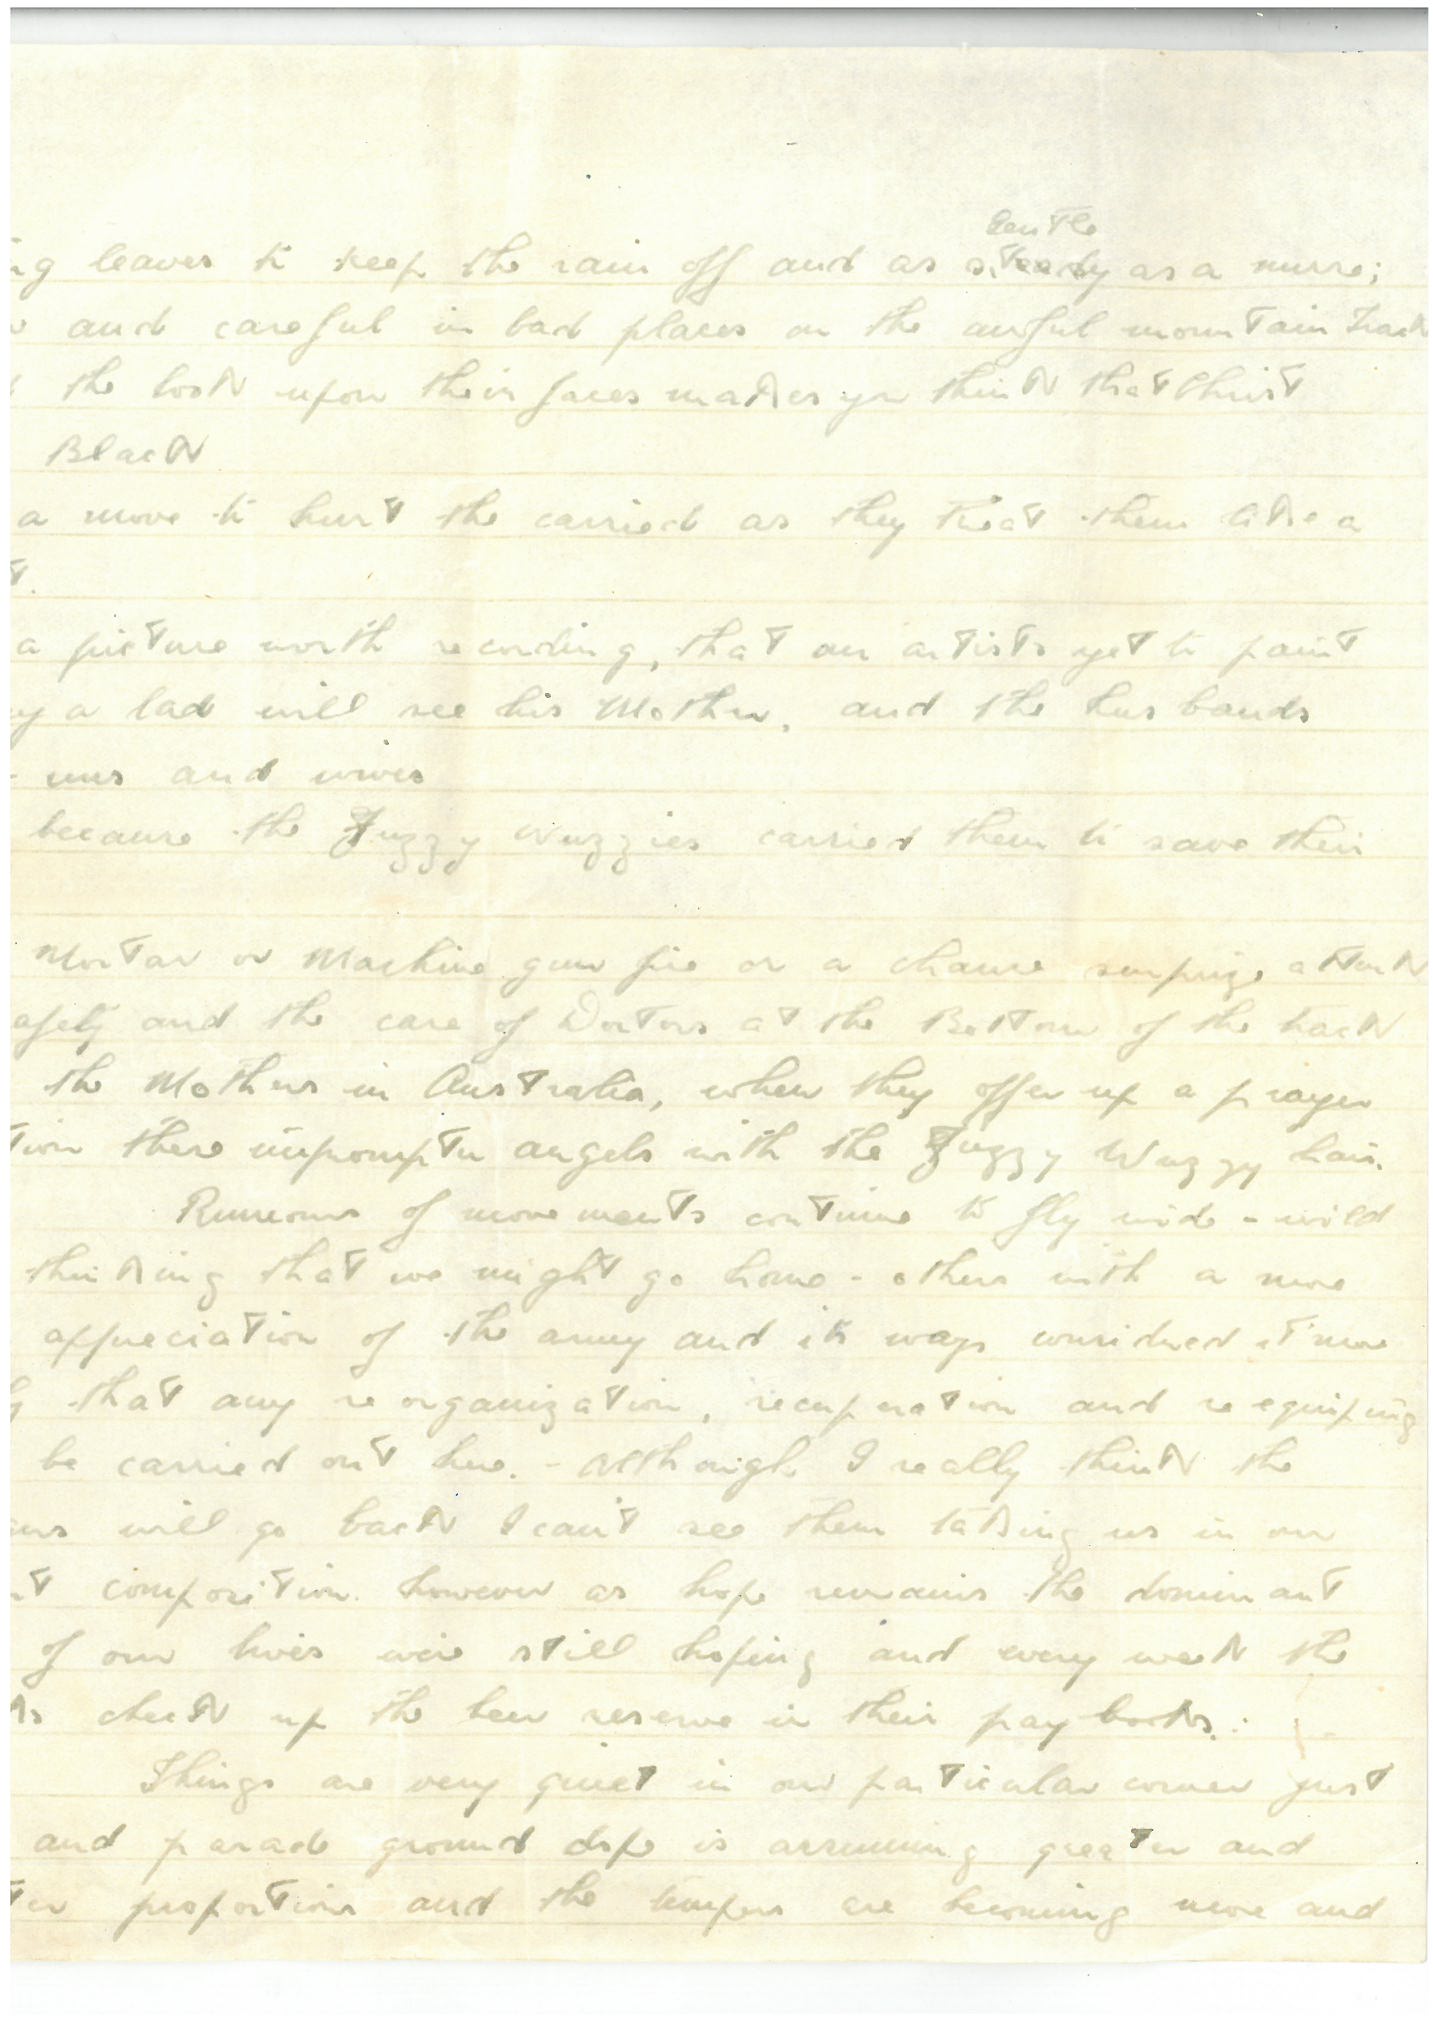 gentle
ng leaves to keep the rain off and as steady as a nurse;
and careful in bad places on the awful mountain track
the look upon their faces makes you think that Christ
Black
a move to hurt the carried as they treat them like a
t.
a picture worth recording, that an artists yet to paint
y a lad will see his Mother, and the husbands
- uns and wives
because the Fuzzy Wuzzies carried them to save their
Mortar or Machine gun fire or a chance surprize attack
afety and the care of Doctors at the Bottom of the track
the Mothers in Australia, when they offer up a prayer
tion these impromptu angels with the Fuzzy Wuzzy hair.
Rumours of movements continue to fly wide - wild
thinking that we might go home - others with a more
appreciation of the army and its ways considered it more
y that any reorganization, recuperation and reequiping
be carried out here. - Although I really think the
will go back I can't see them taking us in our
nt composition. however as hope remains the dominant
of our lives we're still hoping and every week the
ks check up the beer reserve in their pay books.
Things are very quiet in our particular corner just
and parade ground dope is assuming greater and
ter proportions and the tempers are becoming more and